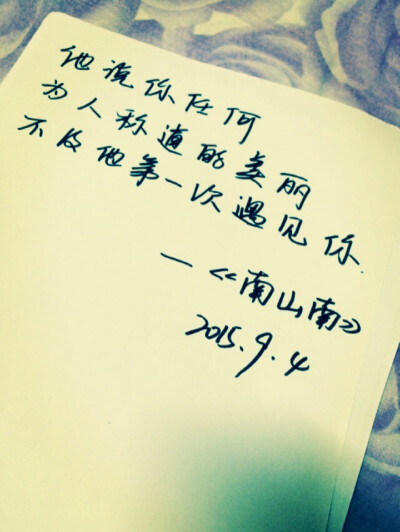 他说你任何
为人称道的美丽
不及他第一次遇见你
—《南山南》
2015.9.4